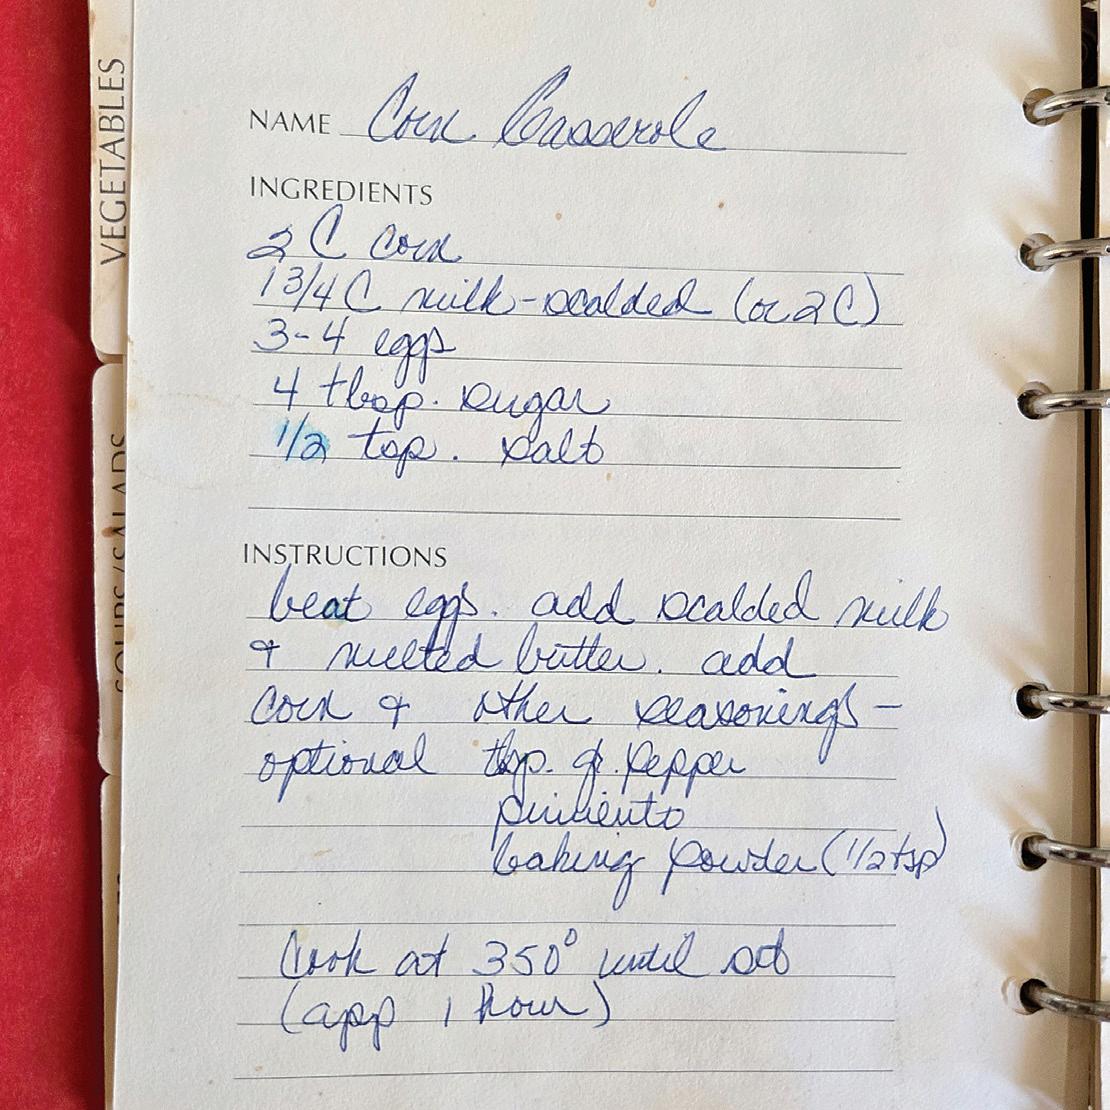 VEGETABLES
SOUPS/SALADS
NAME Corn Casserole
INGREDIENTS
2 C corn
1 3/4 C milk-scalded (or 2 C)
3-4 eggs
4 tbsp. sugar
1/2 tsp. salt
INSTRUCTIONS
beat eggs. add scalded milk
& melted butter. add
corn & other seasonings -
optional tbsp. gr. pepper
pimiento
baking powder (1/2 tsp)
Cook at 350° until set
(app 1 hour)